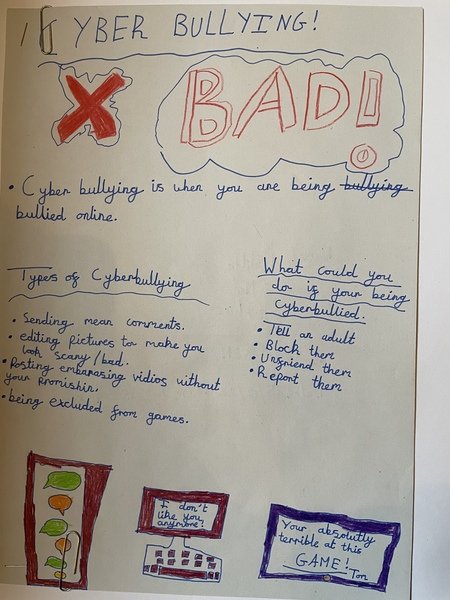 CYBER BULLYING!
X BAD!
• Cyber bullying is when you are being bullying
bullied online.
Types of Cyberbullying
• Sending mean comments.
• editing pictures to make you
look scary/bad.
• Posting embarasing vidios without
your promishin.
• being excluded from games.
What could you
do is your being
Cyberbullied.
• Tell an adult
• Block them
• Unfriend them
• Report them
I don't
like you
anymore!
Your absolutly
terrible at this
GAME!
Tom